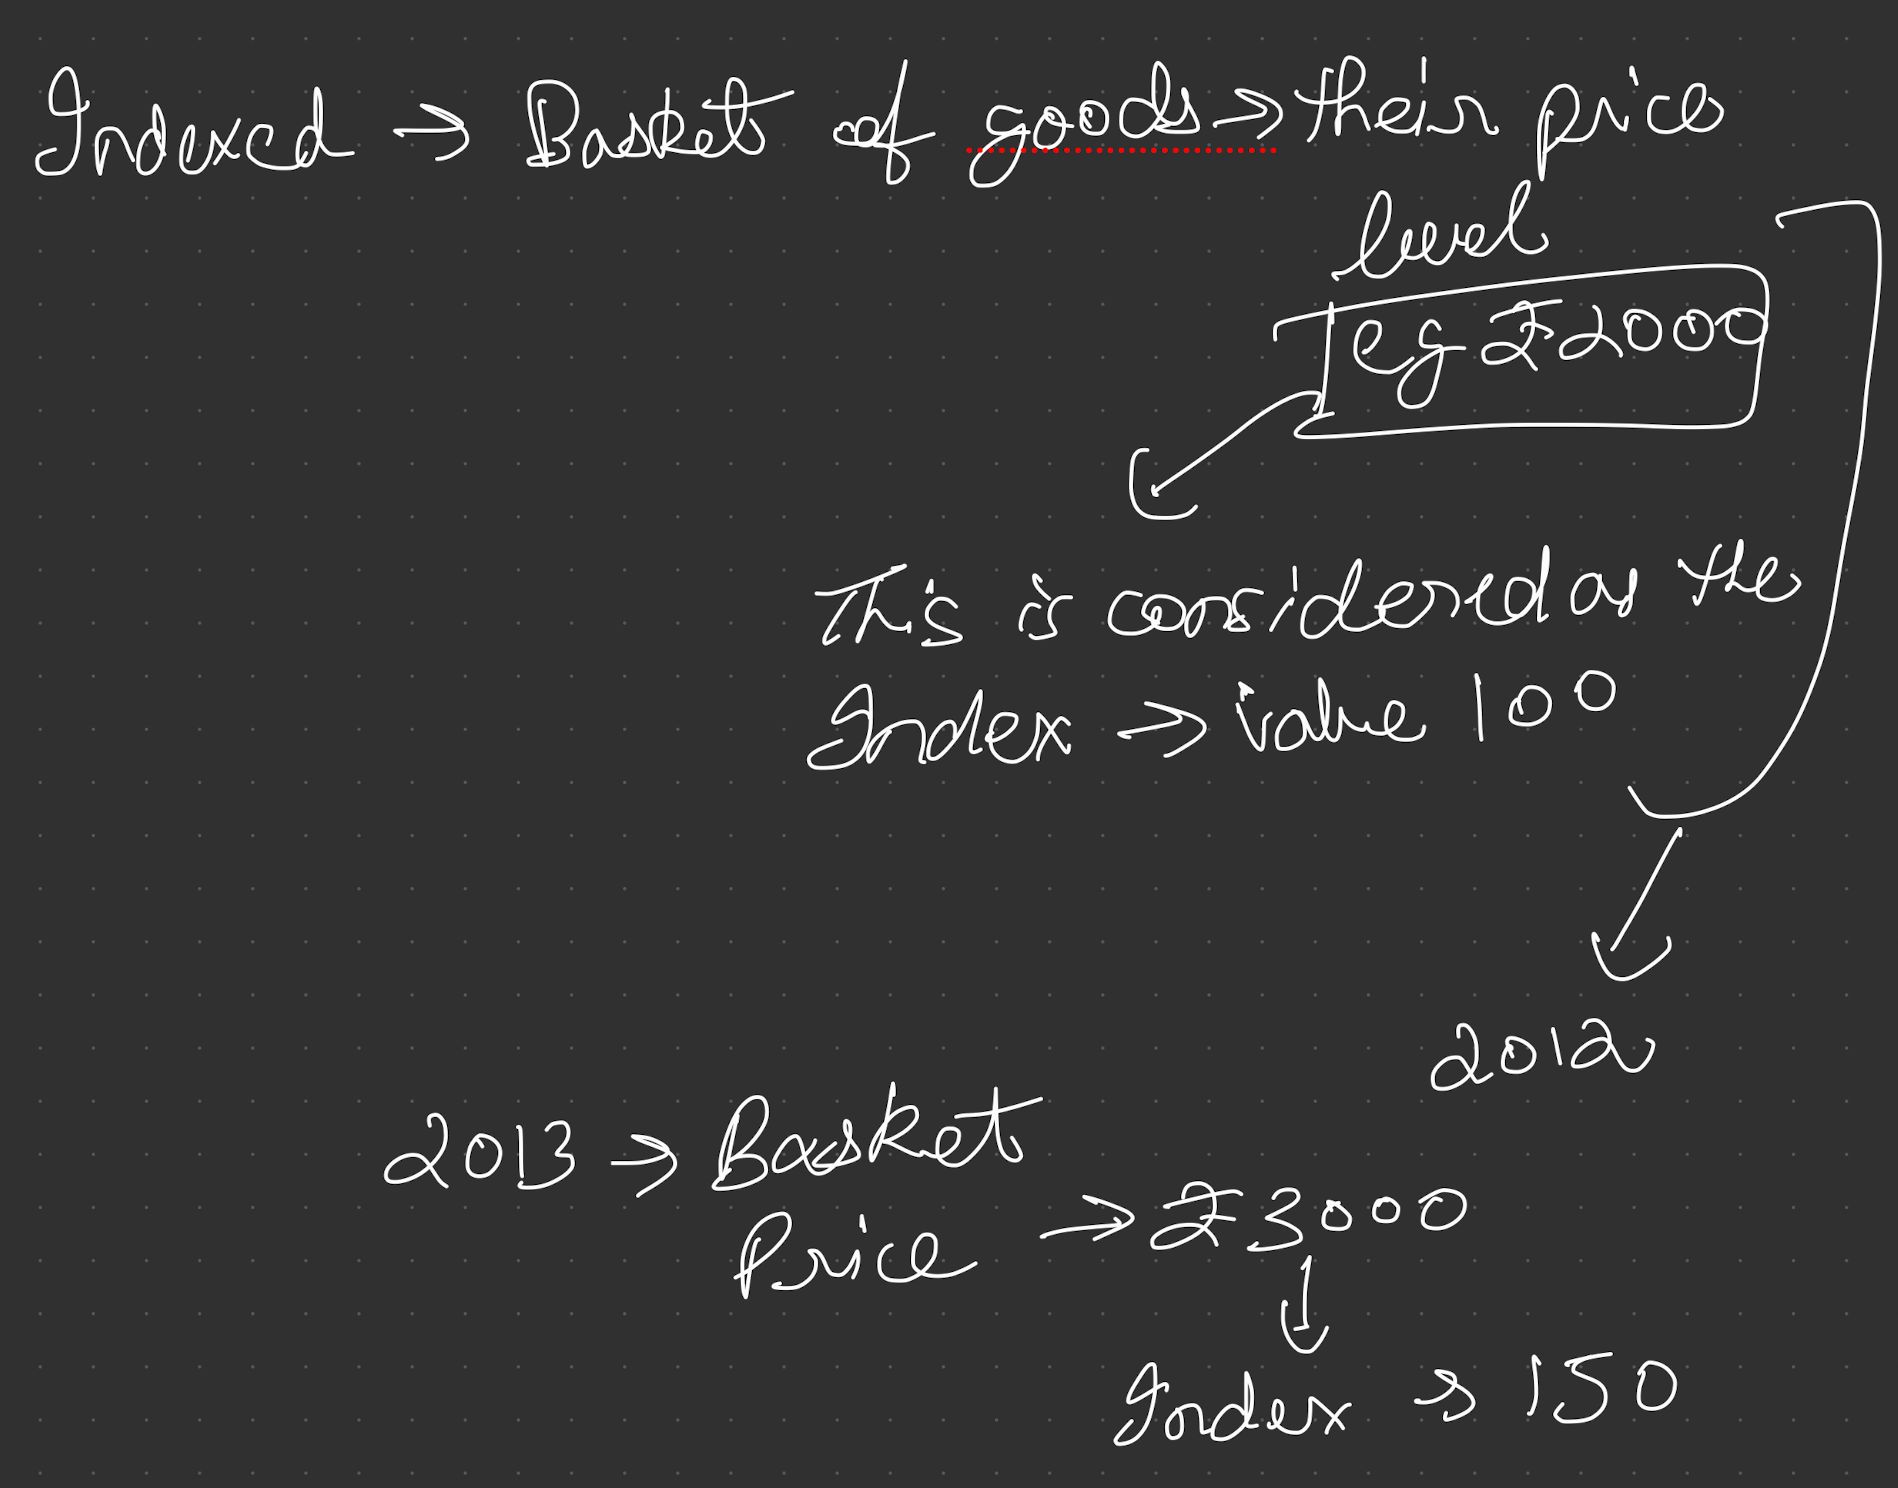 Indexed → Basket of goods → their price
level
eg ₹2000
This is considered as the
Index → value 100
2012
2013 → Basket
Price → ₹3000
Index → 150